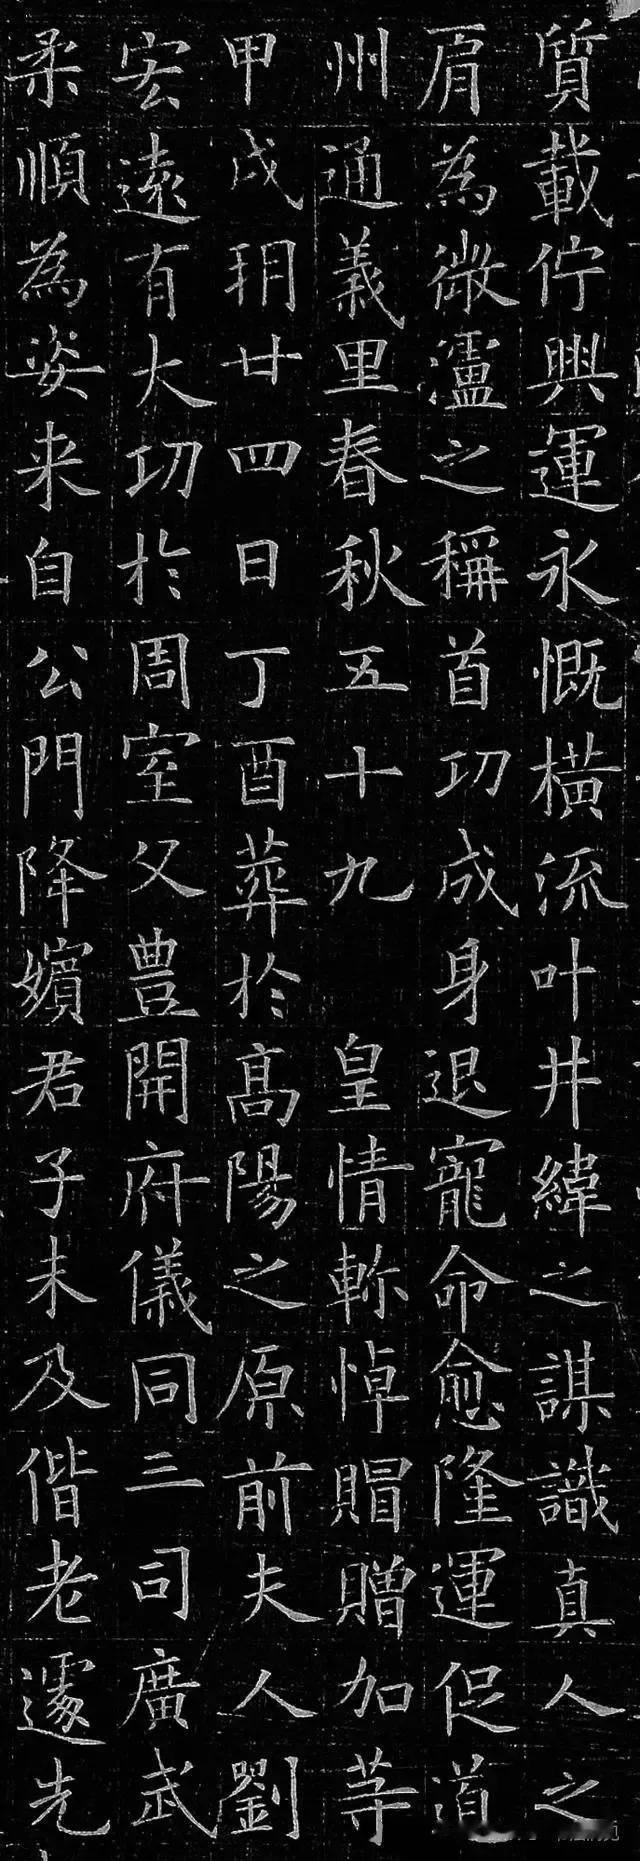 質載佇興運永慨橫流叶井緯之謀識真人之
肩為微瀘之稱首功成身退寵命愈隆運促道
州通義里春秋五十九皇情軫悼賵贈加等
甲戌玥廿四日丁酉葬於高陽之原前夫人劉
宏遠有大功於周室父豊開府儀同三司廣武
柔順為姿来自公門降嬪君子未及偕老遽先